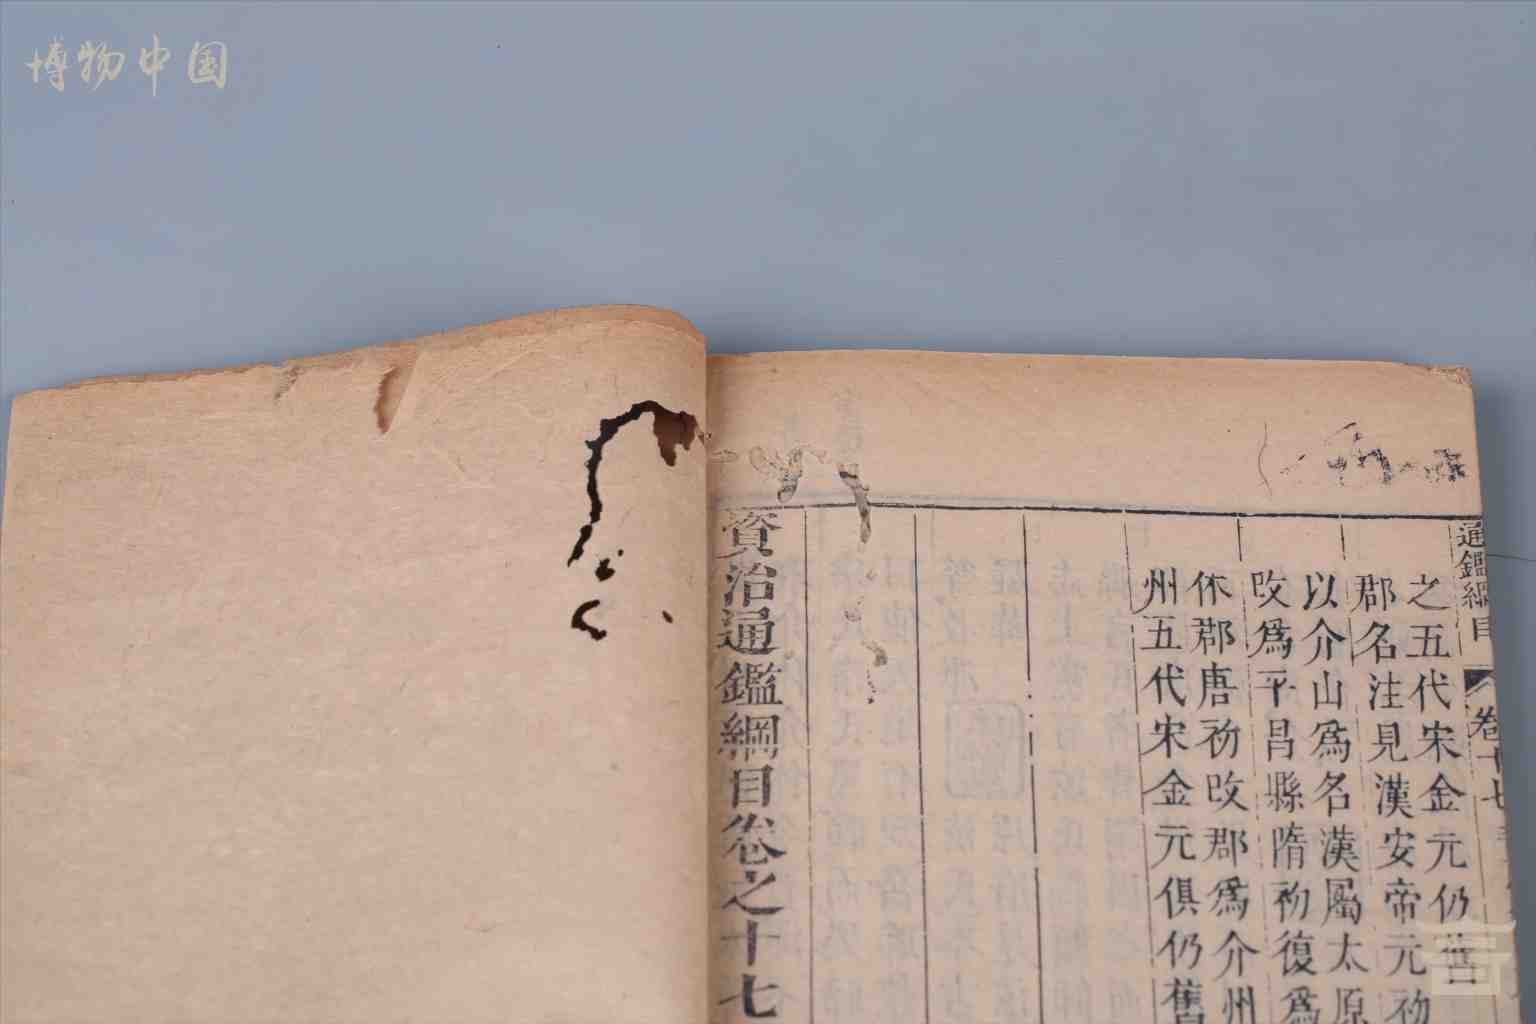 博物中国
通鑑綱目 卷十七
之五代宋金元仍舊
郡名注見漢安帝元初
以介山爲名漢屬太原
改爲平昌縣隋初復爲
休郡唐初改郡爲介州
州五代宋金元俱仍舊
資治通鑑綱目卷之十七